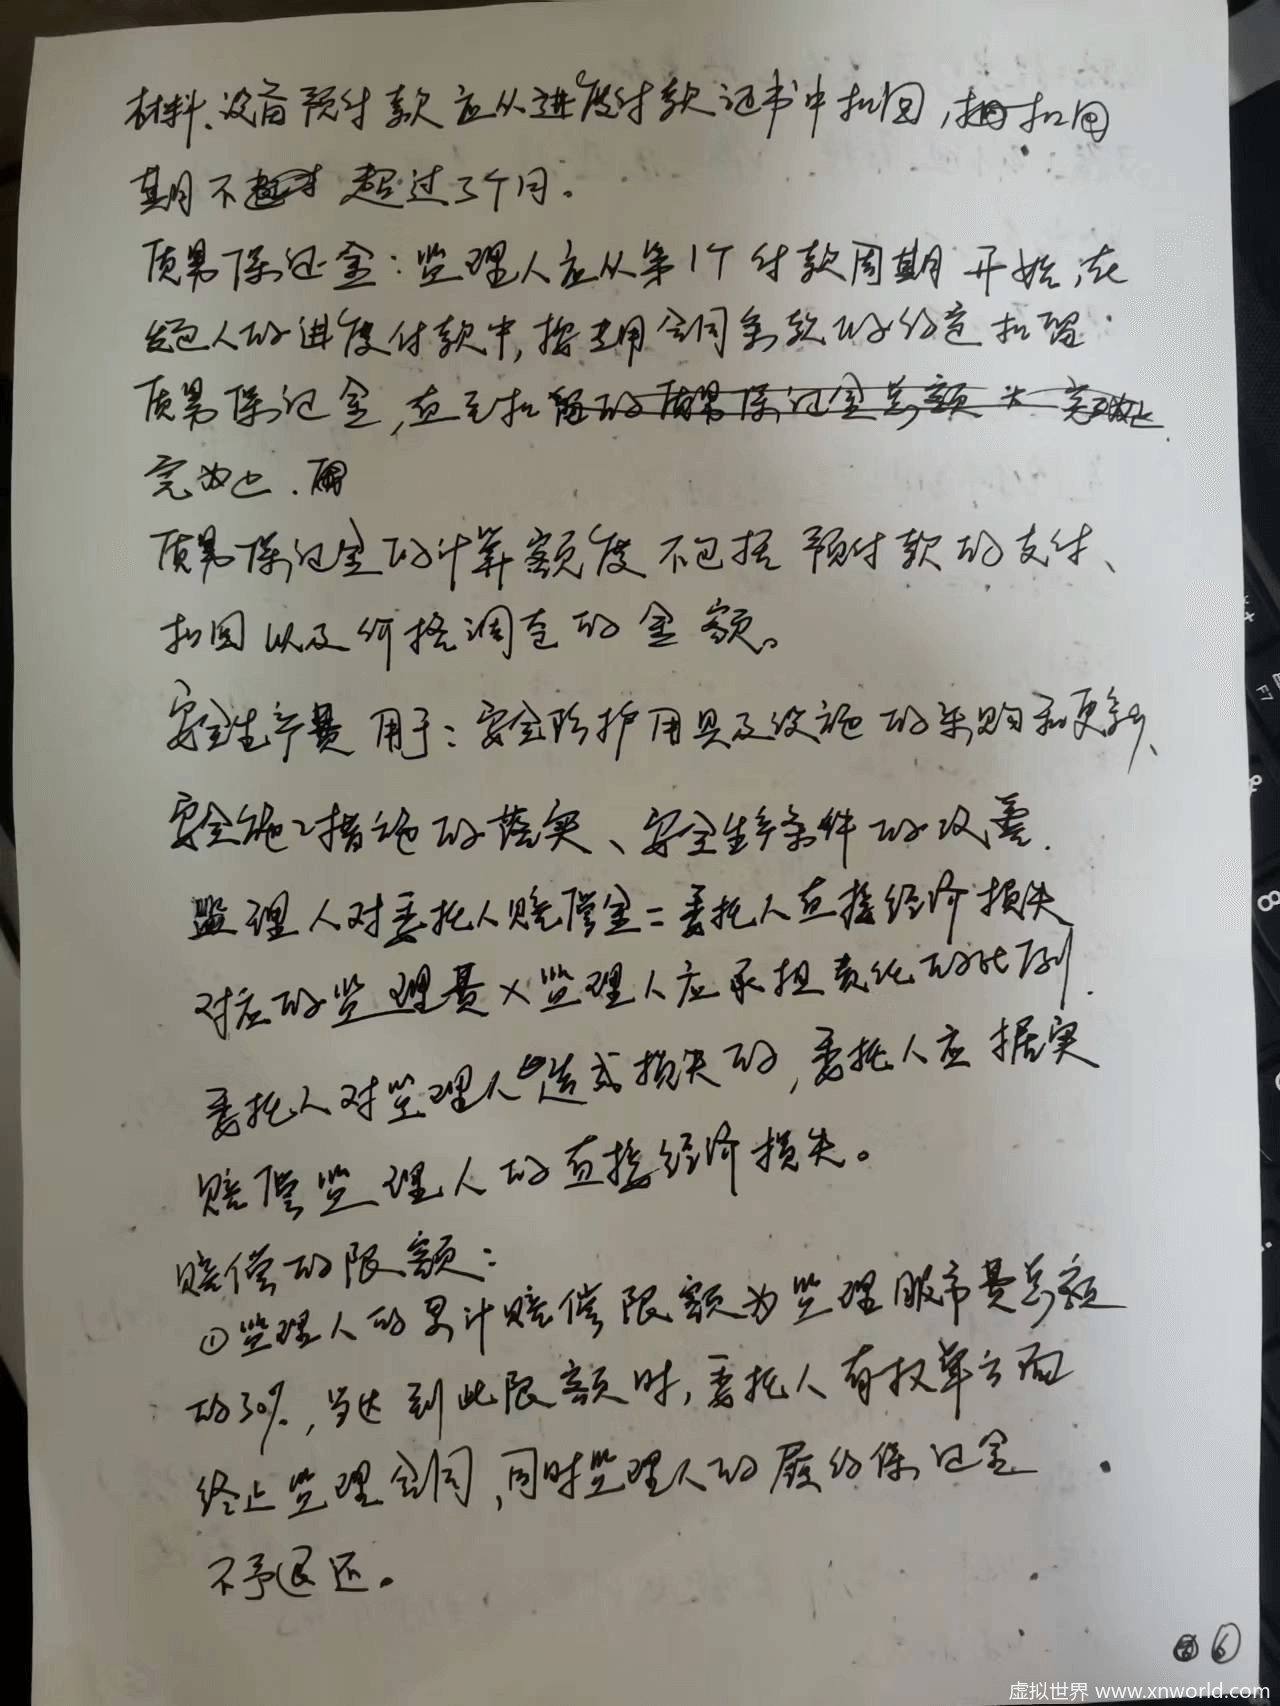 材料、设备预付款应从进度付款证书中扣回，扣回
期不超过3个月。
质量保证金：监理人应从第1个付款周期开始，在
发包人的进度付款中，按专用合同条款的约定扣留
质量保证金，直至扣留的质量保证金总额为
完为止.
质量保证金的计算额度不包括预付款的支付、
扣回以及价格调查的金额。
安全生产费用于：安全防护用具及设施的采购和更新、
安全施工措施的落实、安全生产条件的改善.
监理人对委托人赔偿金=委托人直接经济损失
对应的监理费×监理人应承担责任的比例.
委托人对监理人造成损失的，委托人应据实
赔偿监理人的直接经济损失。
赔偿的限额：
①监理人的累计赔偿限额为监理服务费总额
的30%，当达到此限额时，委托人有权单方面
终止监理合同，同时监理人的履约保证金
不予退还。
⑥
虚拟世界 www.xnworld.com